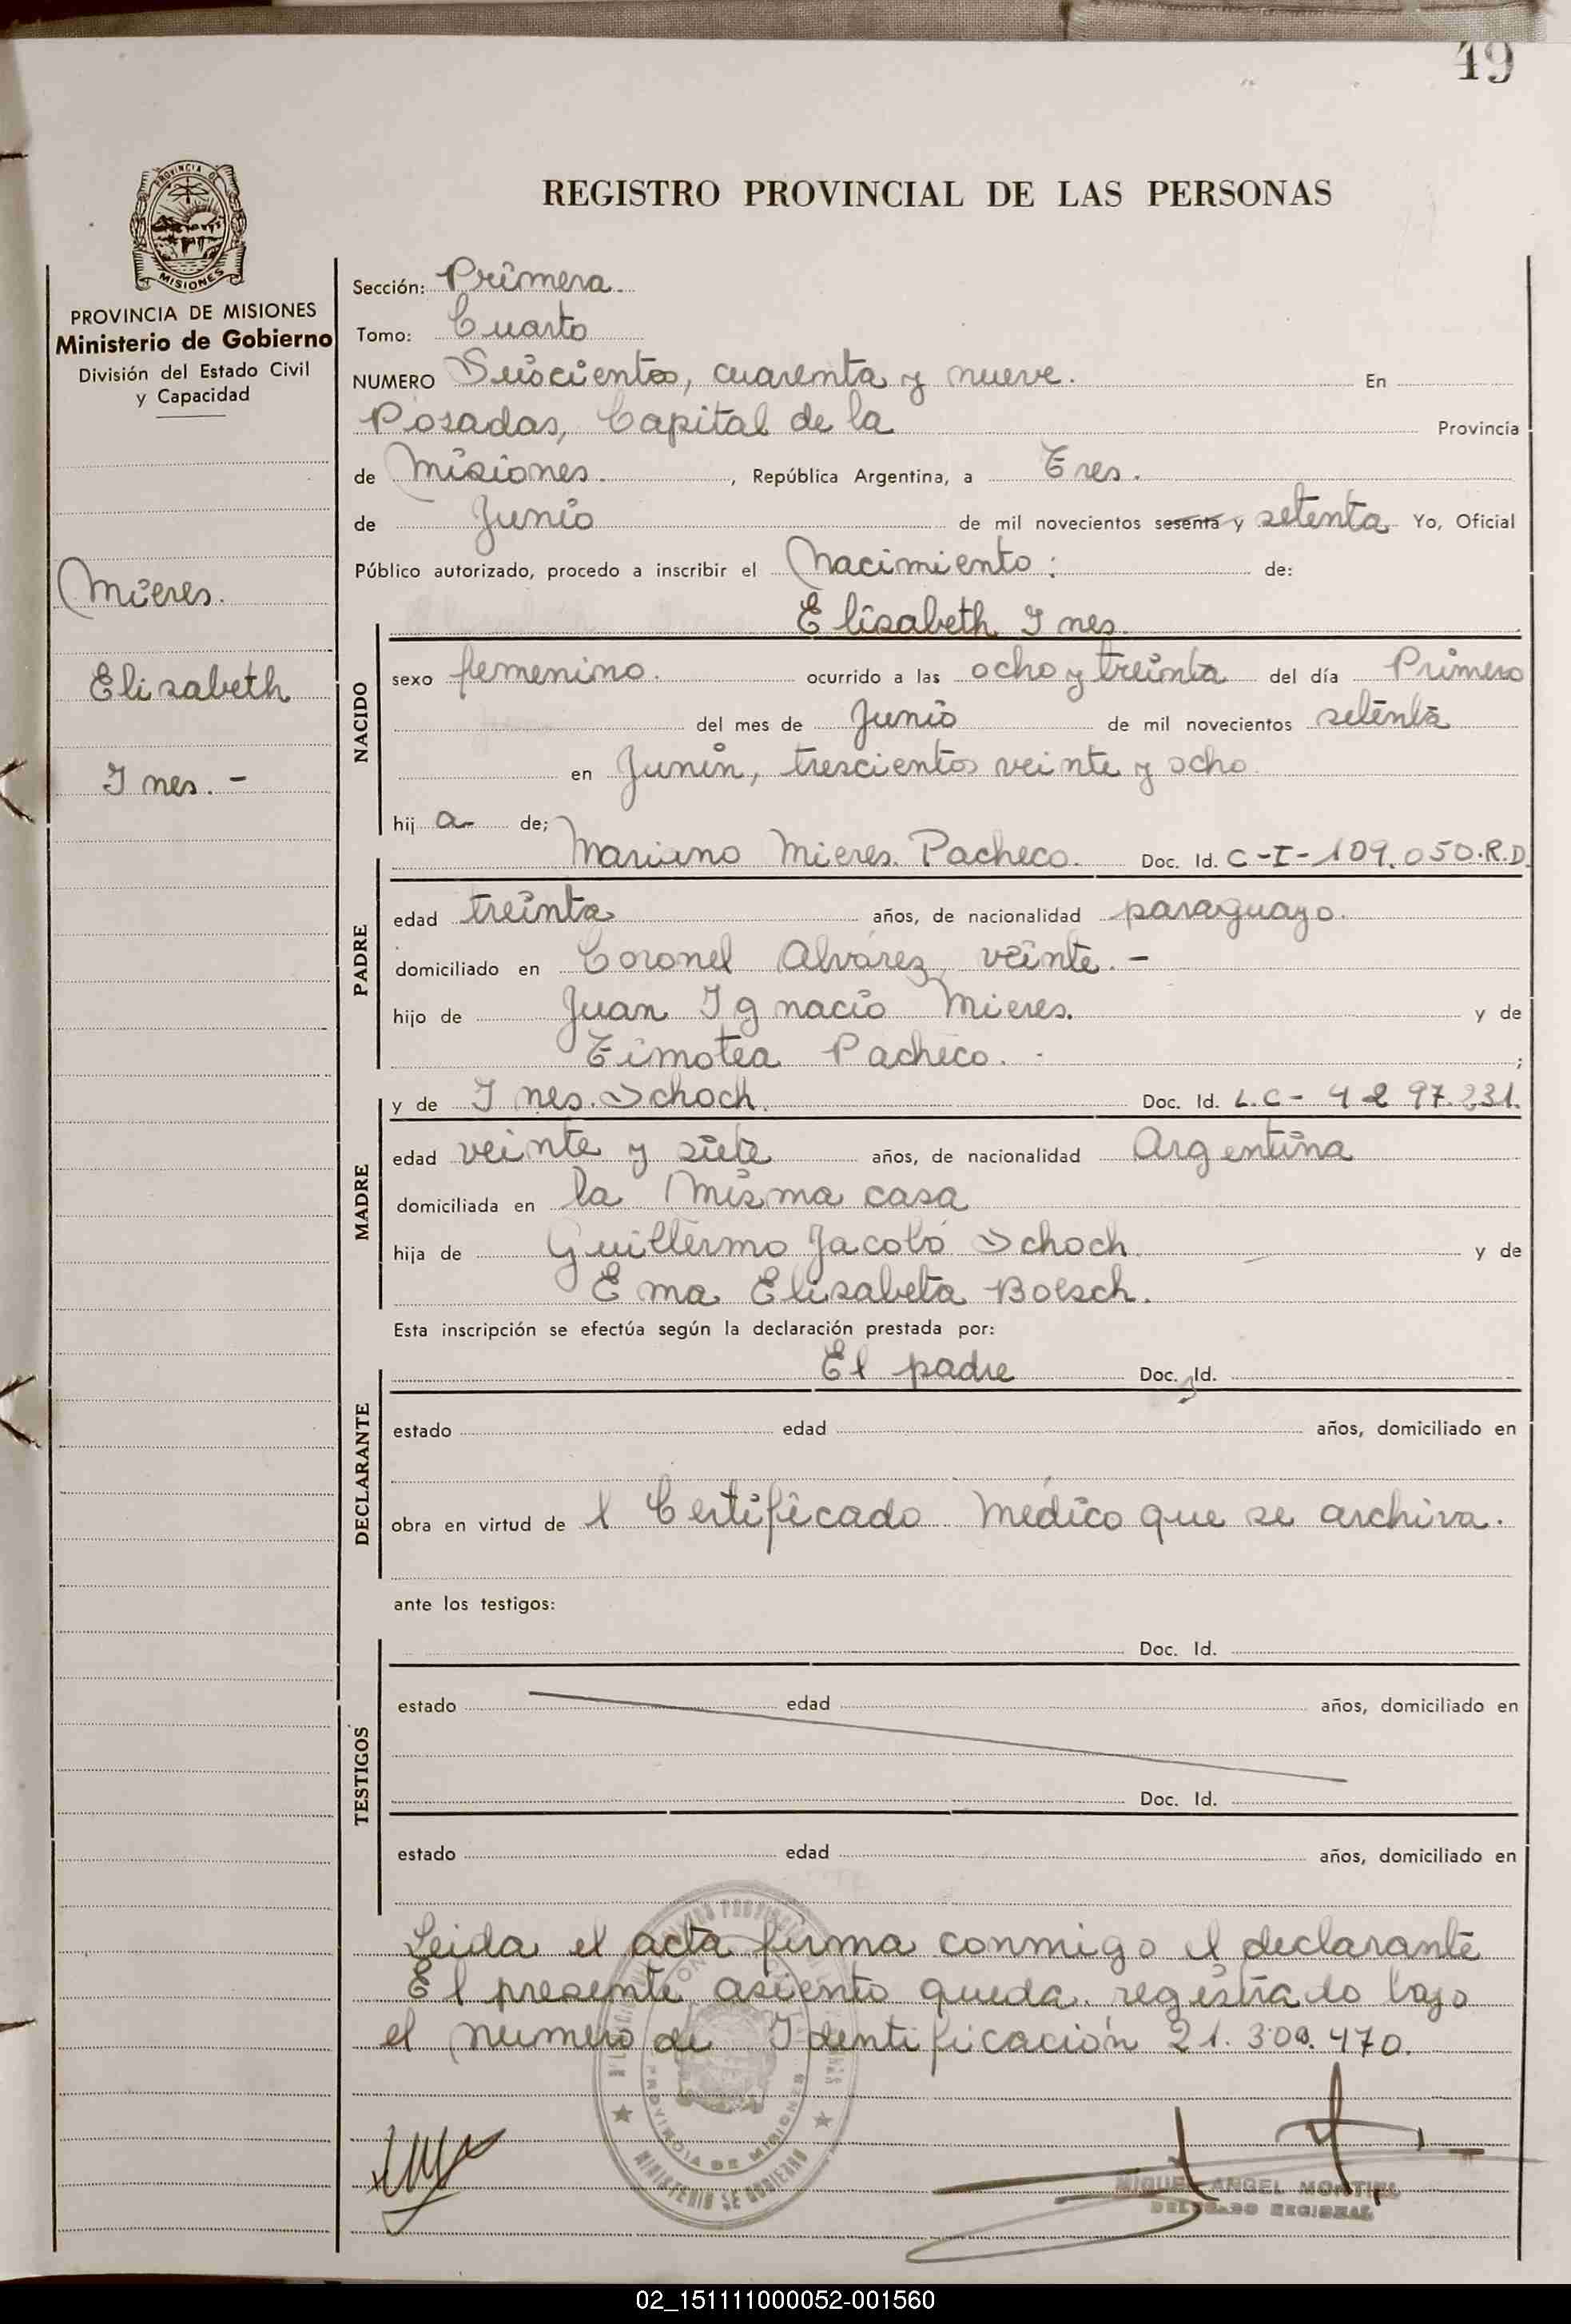 49
PROVINCIA DE
MISIONES
REGISTRO PROVINCIAL DE LAS PERSONAS
PROVINCIA DE MISIONES
Ministerio de Gobierno
División del Estado Civil
y Capacidad
Mieres.
Elisabeth
Ines. -
Sección: Primera.
Tomo: Cuarto
NUMERO Seiscientos, cuarenta y nueve. En
Posadas, Capital de la Provincia
de Misiones. , República Argentina, a Tres.
de Junio de mil novecientos sesenta y setenta Yo, Oficial
Público autorizado, procedo a inscribir el Nacimiento: de:
Elisabeth Ines.
NACIDO
sexo femenino. ocurrido a las ocho y treinta del día Primero
del mes de Junio de mil novecientos setenta
en Junín, trescientos veinte y ocho.
hij a de;
Mariano Mieres Pacheco. Doc. Id. C-I-109.050.R.D.
PADRE
edad treinta años, de nacionalidad paraguayo.
domiciliado en Coronel Alvárez, veinte. -
hijo de Juan Ignacio Mieres. y de
Timotea Pacheco. ;
y de Ines Schoch. Doc. Id. L.C- 4297.231.
MADRE
edad veinte y siete años, de nacionalidad Argentina
domiciliada en la Misma casa
hija de Guillermo Jacobo Schoch y de
Ema Elisabeta Boesch.
Esta inscripción se efectúa según la declaración prestada por:
El padre Doc. Id.
DECLARANTE
estado edad años, domiciliado en
obra en virtud de l Certificado Médico que se archiva.
ante los testigos:
Doc. Id.
TESTIGOS
estado edad años, domiciliado en
Doc. Id.
estado edad años, domiciliado en
Leida el acta firma conmigo el declarante
El presente asiento queda registrado bajo
el numero de Identificación 21.300.470.
PROVINCIA DE MISIONES
MINISTERIO DE GOBIERNO
MIGUEL ANGEL MONTIEL
DELEGADO REGIONAL
02_151111000052-001560